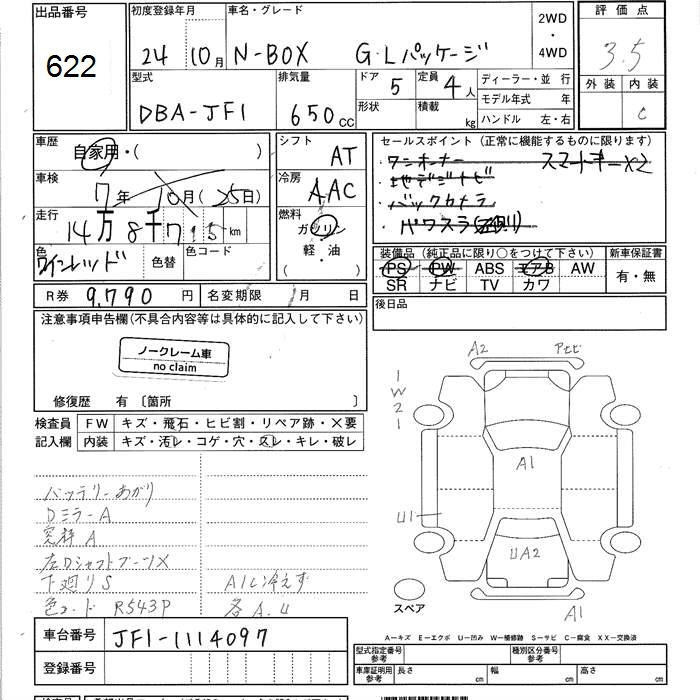 出品番号 622
初度登録年月 24 10月
車名・グレード N-BOX G・Lパッケージ
2WD ・ 4WD
評価点 3.5
外装 内装 C
型式 DBA-JF1
排気量 650 CC
ドア 5 定員 4人
形状 積載 kg
ディーラー・並行
モデル年式 年
ハンドル 左・右
車歴 自家用・( )
シフト AT
車検 7年 10月(25日)
冷房 AAC
走行 14万8千715km
燃料 ガソリン 軽・油 ( )
色 ワインレッド 色替 色コード
セールスポイント (正常に機能するものに限ります)
・ワンオーナー スマートキーX2
・地デジナビ
・バックカメラ
・パワスラ(左側)
装備品 (純正品に限り○をつけて下さい) 新車保証書
PS PW ABS エアB AW 有・無
SR ナビ TV カワ
R券 9,790円 名変期限 月 日
後日品
注意事項申告欄(不具合内容等は具体的に記入して下さい)
ノークレーム車
no claim
修復歴 有〔箇所 〕
検査員 FW キズ・飛石・ヒビ割・リペア跡・X要
記入欄 内装 キズ・汚レ・コゲ・穴・スレ・キレ・破レ
バッテリーあがり
DミラーA
窓枠A
左DシャフトブーツX
下廻りS A/C冷えず
色コード R543P 各A.U
A2 アセビ
1
W
2
1
A1
U1
UA2
A1
スペア
A-キズ E-エクボ U-凹み W-補修跡 S-サビ C-腐食 XX-交換済
車台番号 JF1-1114097
登録番号
型式指定番号 参考 種別区分番号 参考
車庫証明用 参考 長さ cm 幅 cm 高さ cm